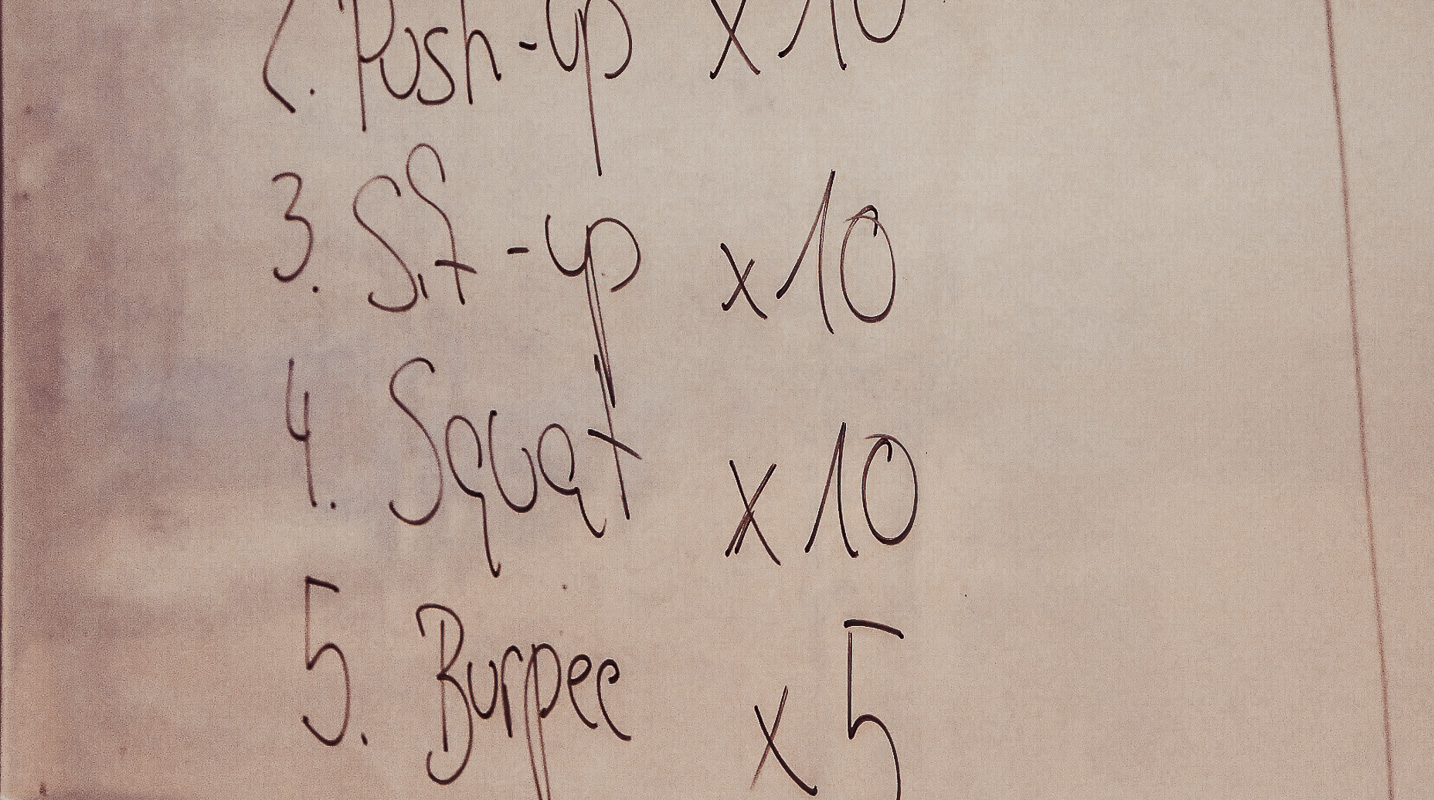 2. Push-up x10
3. Sit-up x10
4. Squat x10
5. Burpee x5